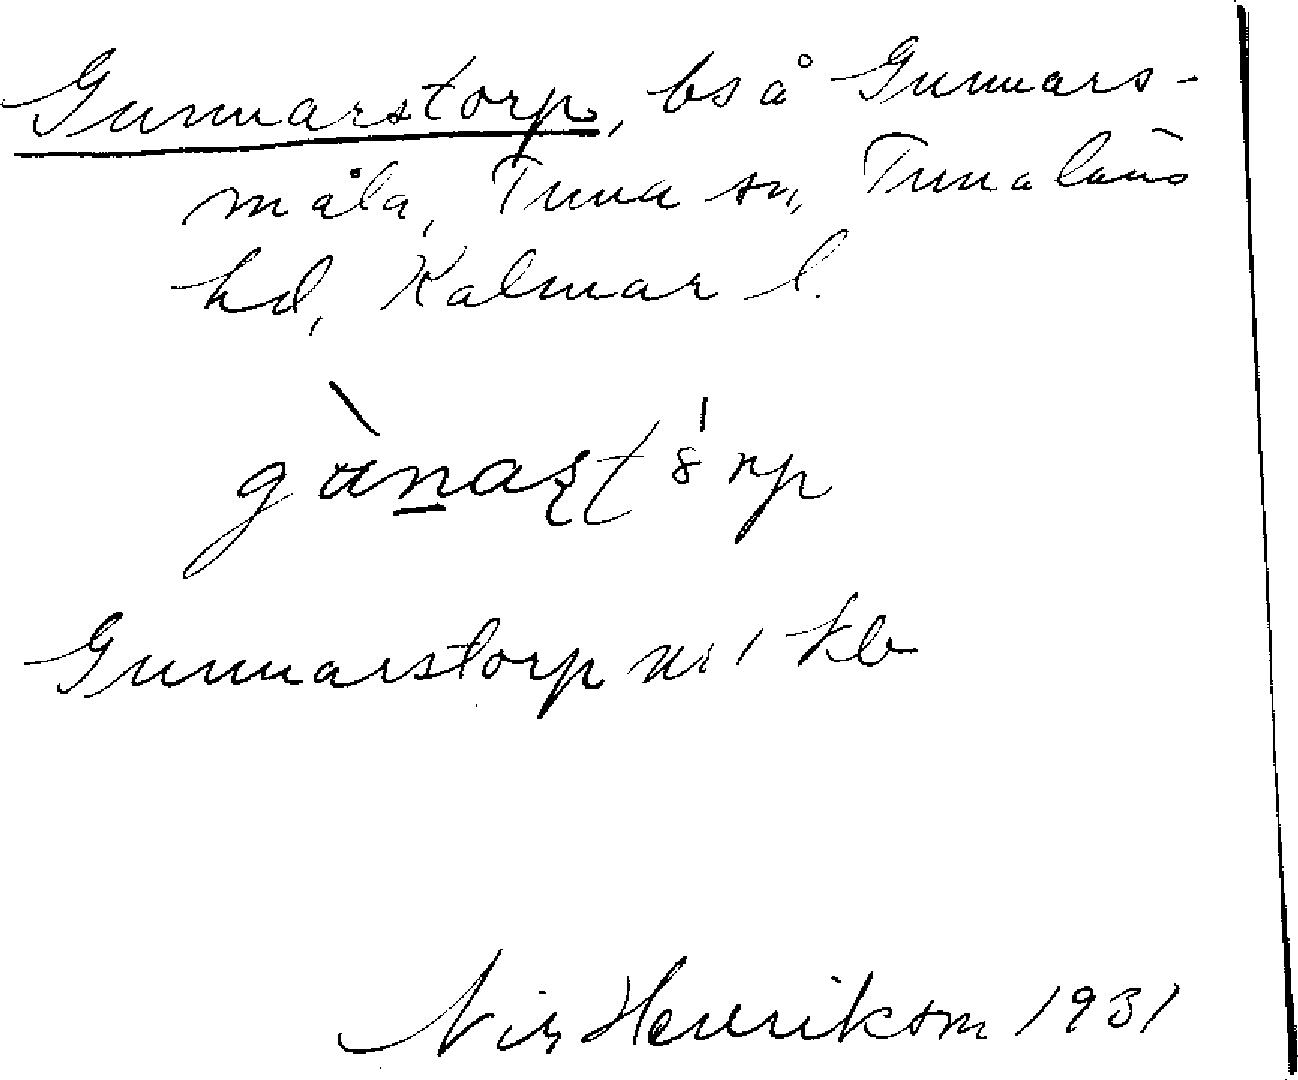 Gunnarstorp, bs å Gunnars-
måla, Tuna sn, Tunaläns
hd, Kalmar l.
Gunnarstorp kb
Nils Henrikson 1931